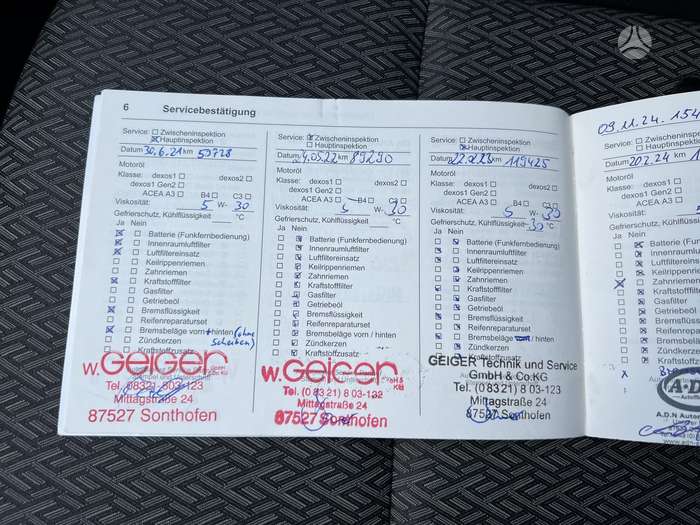 6 Servicebestätigung
Service: Zwischeninspektion
Hauptinspektion
Datum 30.6.21 km 59728
Motoröl
Klasse: dexos1 dexos2
dexos1 Gen2
ACEA A3 B4 C3
Viskosität: 5 W- 30
Gefrierschutz, Kühlflüssigkeit °C
Ja Nein
Batterie (Funkfernbedienung)
Innenraumluftfilter
Luftfiltereinsatz
Keilrippenriemen
Zahnriemen
Kraftstofffilter
Gasfilter
Getriebeöl
Bremsflüssigkeit
Reifenreparaturset
Bremsbeläge vorn + hinten (ohne
Scheiben)
Zündkerzen
Kraftstoffzusatz
w.Geiger
Tel. (08321) 803-123
Mittagstraße 24
87527 Sonthofen
Service: Zwischeninspektion
Hauptinspektion
Datum 4.05.22 km 89290
Motoröl
Klasse: dexos1 dexos2
dexos1 Gen2
ACEA A3 B4 C3
Viskosität: 5 W- 30
Gefrierschutz, Kühlflüssigkeit °C
Ja Nein
Batterie (Funkfernbedienung)
Innenraumluftfilter
Luftfiltereinsatz
Keilrippenriemen
Zahnriemen
Kraftstofffilter
Gasfilter
Getriebeöl
Bremsflüssigkeit
Reifenreparaturset
Bremsbeläge vorn / hinten
Zündkerzen
Kraftstoffzusatz
w.Geiger
Tel. (0 83 21) 8 03-123
Mittagstraße 24
87527 Sonthofen
Service: Zwischeninspektion
Hauptinspektion
Datum km 119425
Motoröl
Klasse: dexos1 dexos2
dexos1 Gen2
ACEA A3 B4 C3
Viskosität: 5 W- 30
Gefrierschutz, Kühlflüssigkeit -30 °C
Ja Nein
Batterie (Funkfernbedienung)
Innenraumluftfilter
Luftfiltereinsatz
Keilrippenriemen
Zahnriemen
Kraftstofffilter
Gasfilter
Getriebeöl
Bremsflüssigkeit
Reifenreparaturset
Bremsbeläge vorn / hinten
Zündkerzen
Kraftstoffzusatz
GEIGER Technik und Service
GmbH & Co.KG
Tel. (0 83 21) 8 03-123
Mittagstraße 24
87527 Sonthofen
09.11.24. 154
Service: Zwischeninspektion
Hauptinspektion
Datum
Motoröl
Klasse: dexos1
dexos1 Gen2
ACEA A3
Viskosität:
Gefrierschutz, Kühlflüssigkeit
Ja Nein
Batterie (Funkfernbed
Innenraumluftfilter
Luftfiltereinsatz
Keilrippenriemen
Zahnriemen
Kraftstofffilter
Gasfilter
Getriebeöl
Bremsflüssigkeit
Reifenreparaturset
Bremsbeläge vorn
Zündkerzen
Kraftstoffzusatz
A.D.
A.D.N Auto